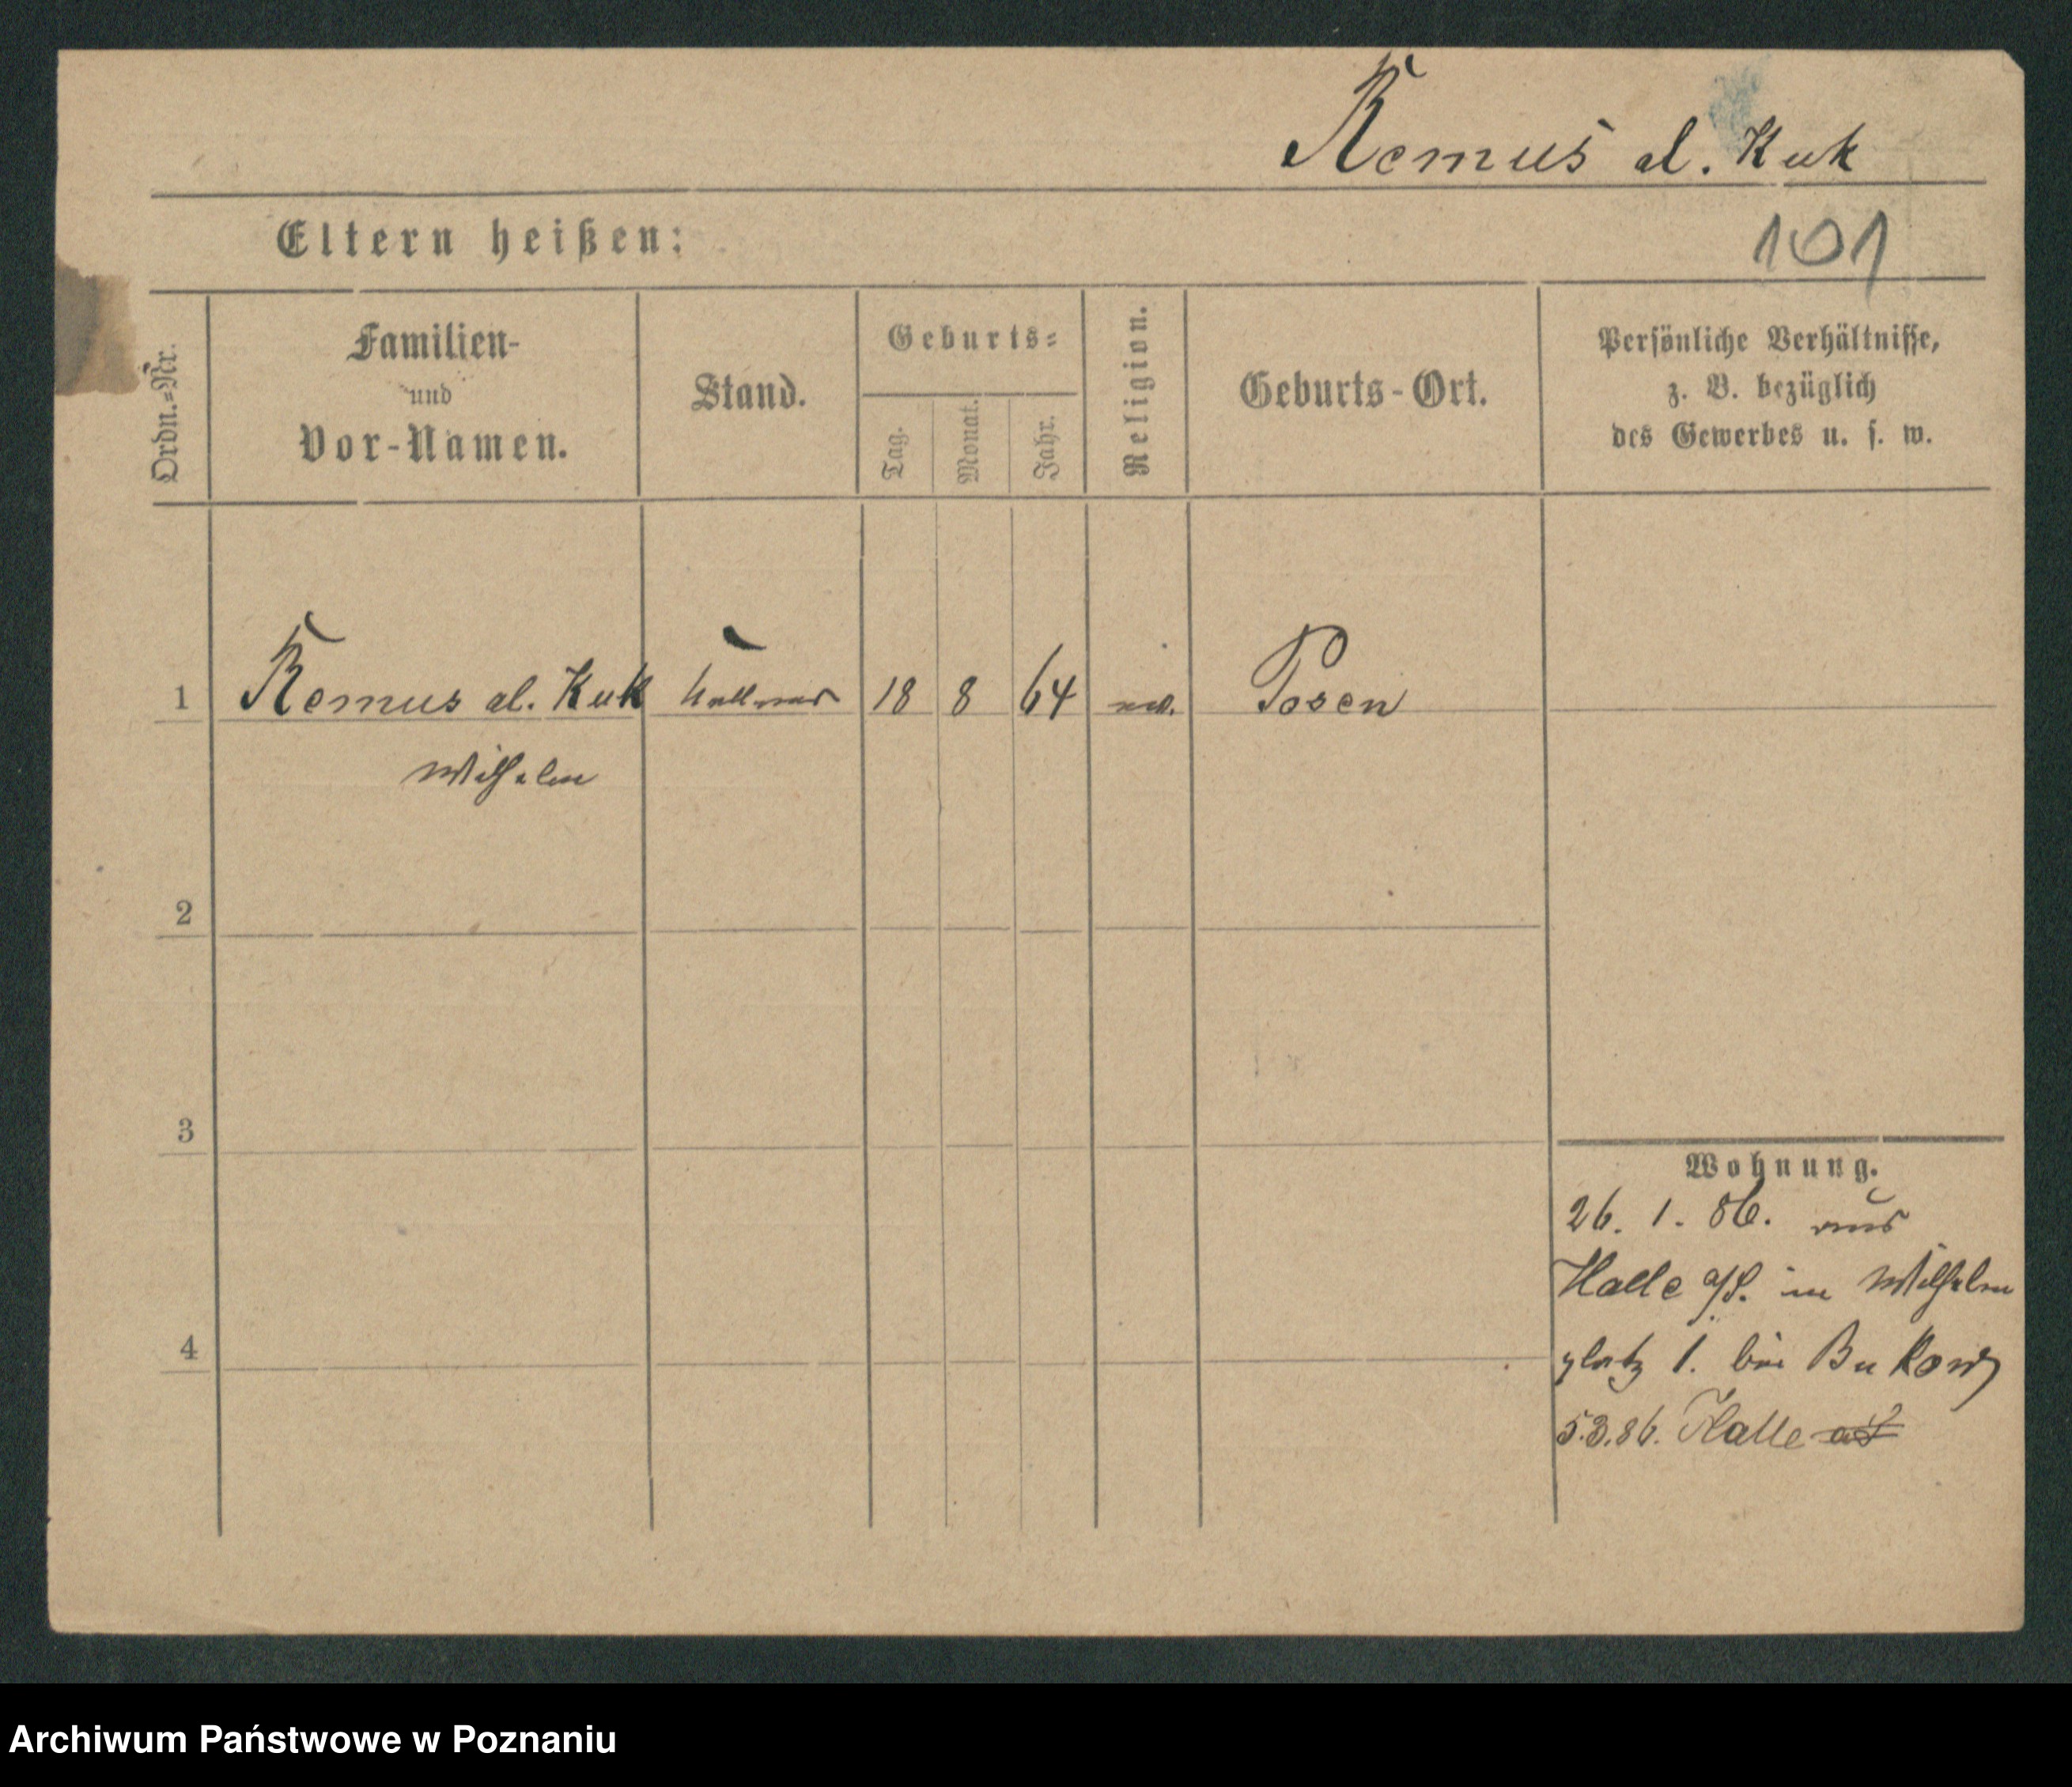 Remus al. Kuk
Eltern heißen:
101
Ordn.=Nr.
Familien-
und
Vor-Namen.
Stand.
Geburts=
Tag.
Monat.
Jahr.
Religion.
Geburts-Ort.
Persönliche Verhältnisse,
z. B. bezüglich
des Gewerbes u. s. w.
1 Remus al. Kuk Kellner 18 8 64 Posen
Wilhelm
2
3
4
Wohnung.
26. 1. 86. aus
Halle a/S. in Wilhelm
platz 1. bei
5.3.86. Halle a/S
Archiwum Państwowe w Poznaniu